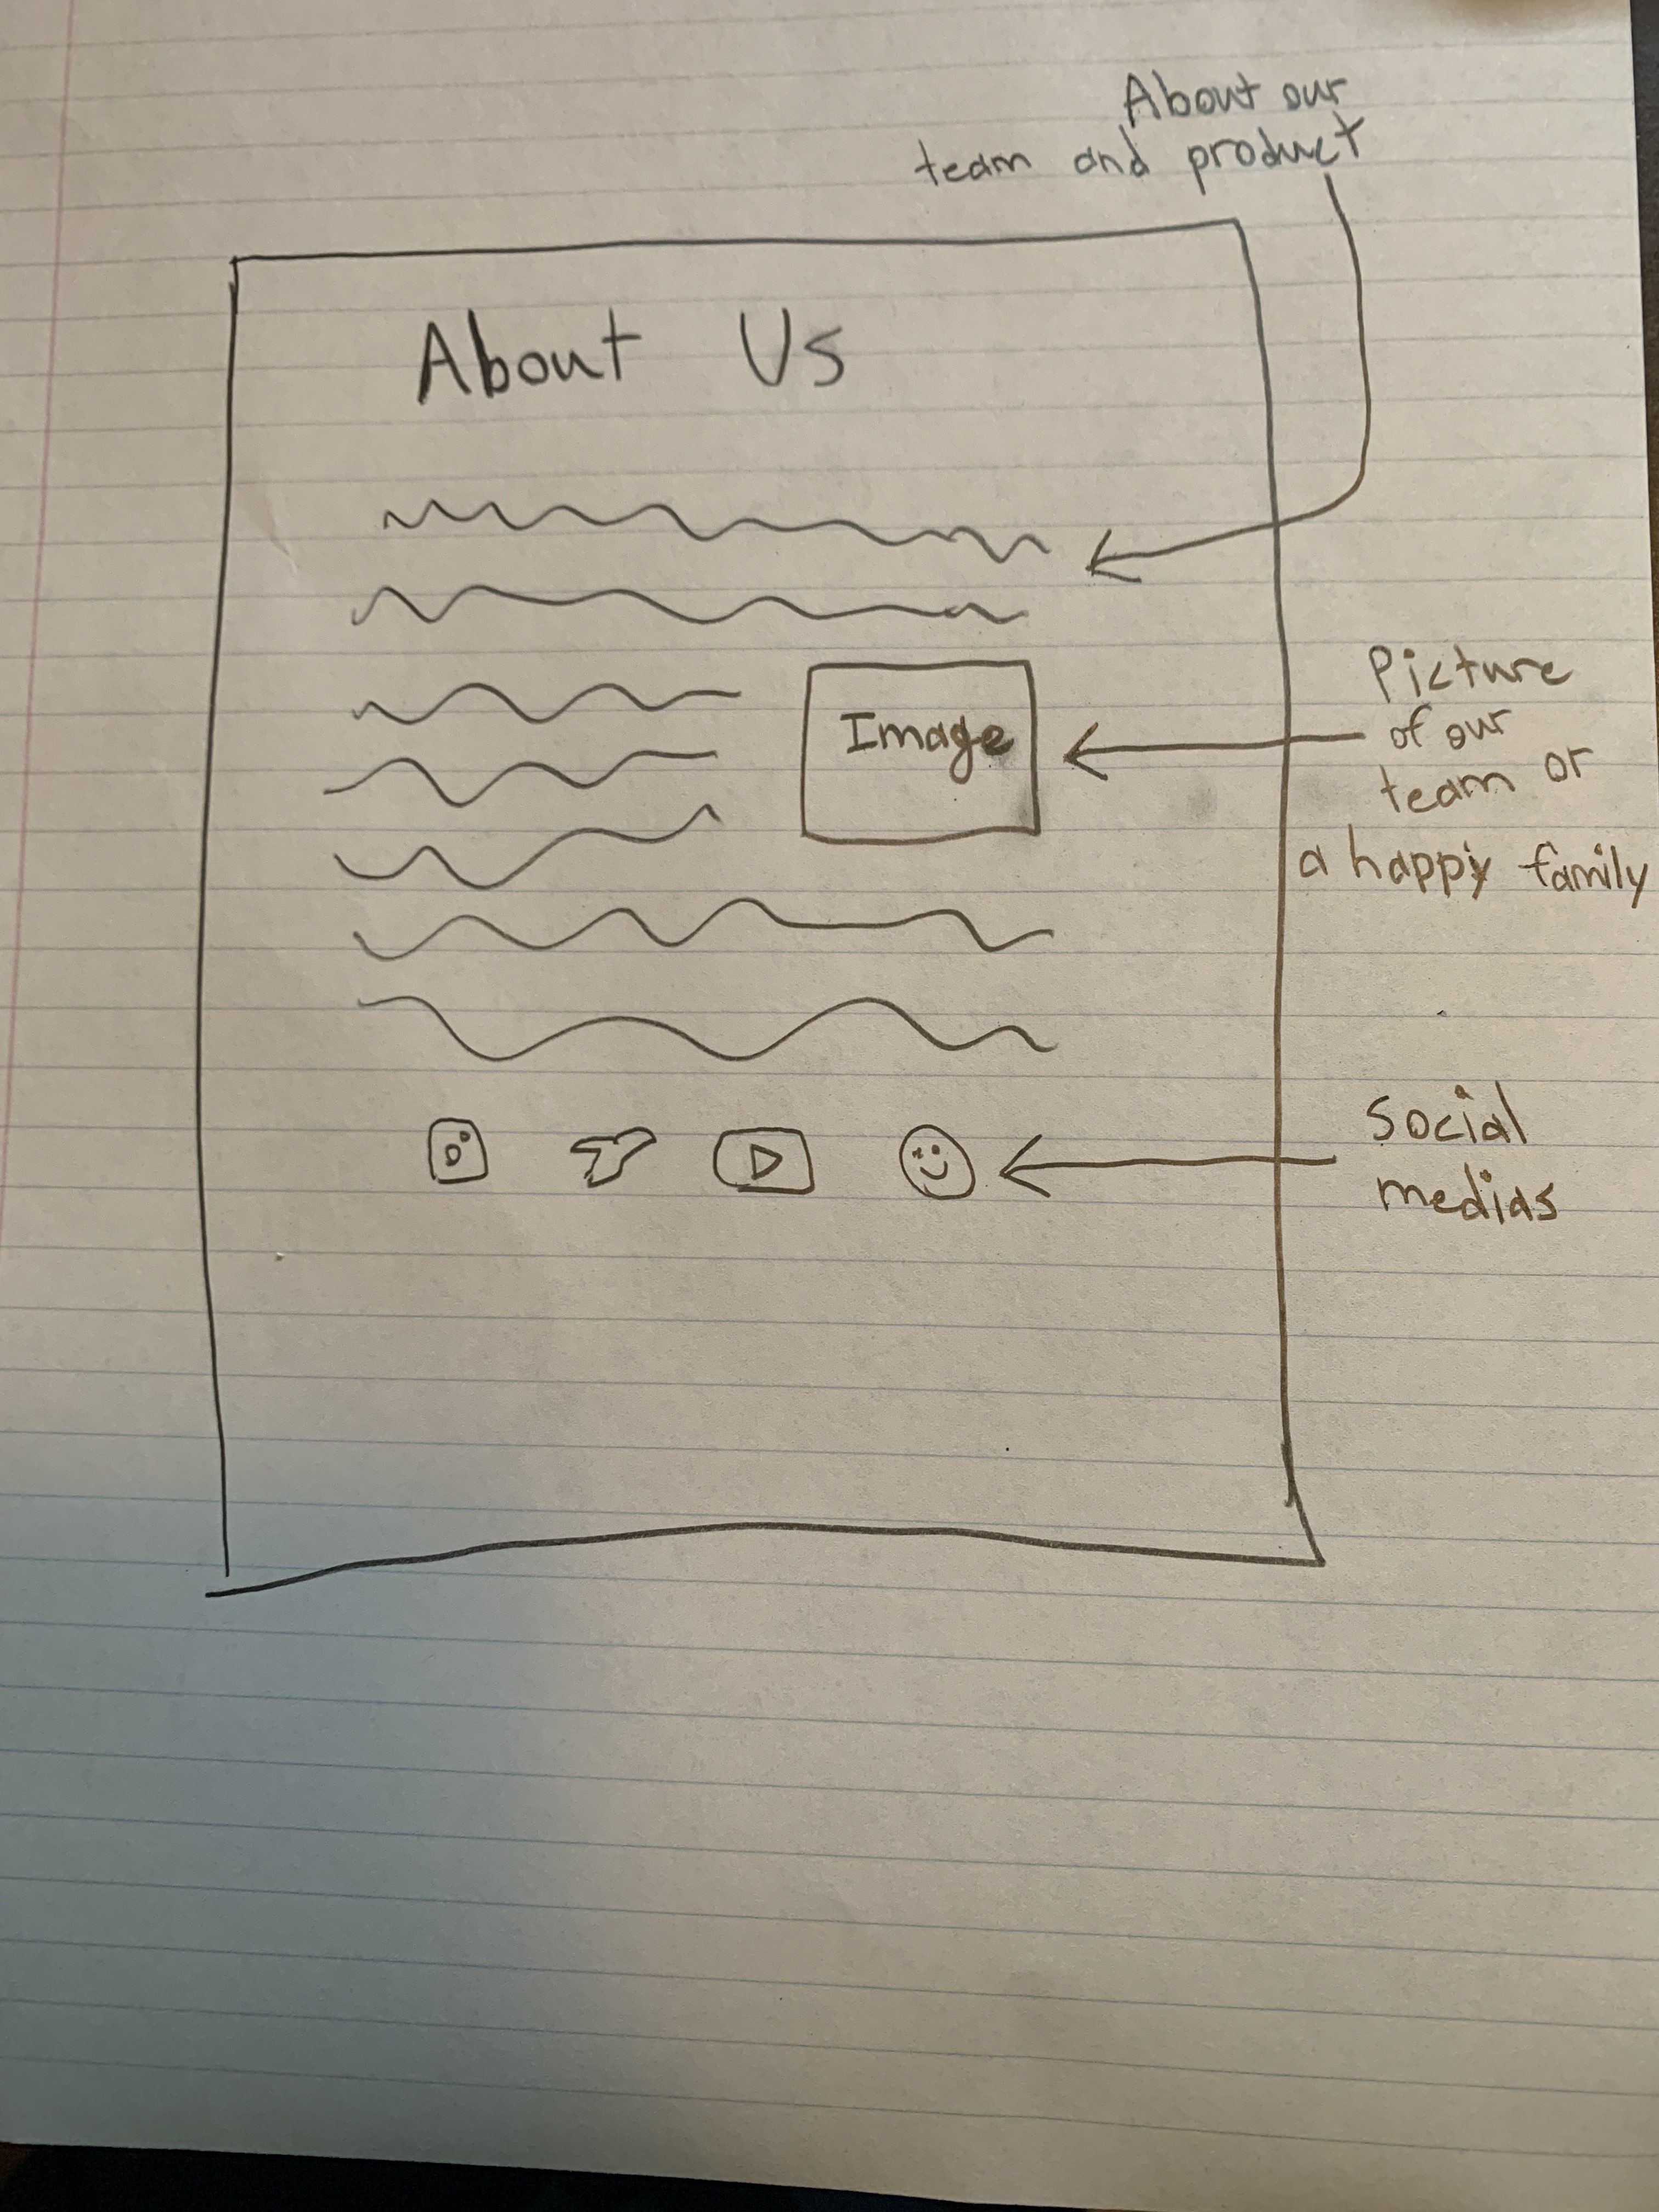 About our
team and product
About Us
Image
Picture
of our
team or
a happy family
Social
medias